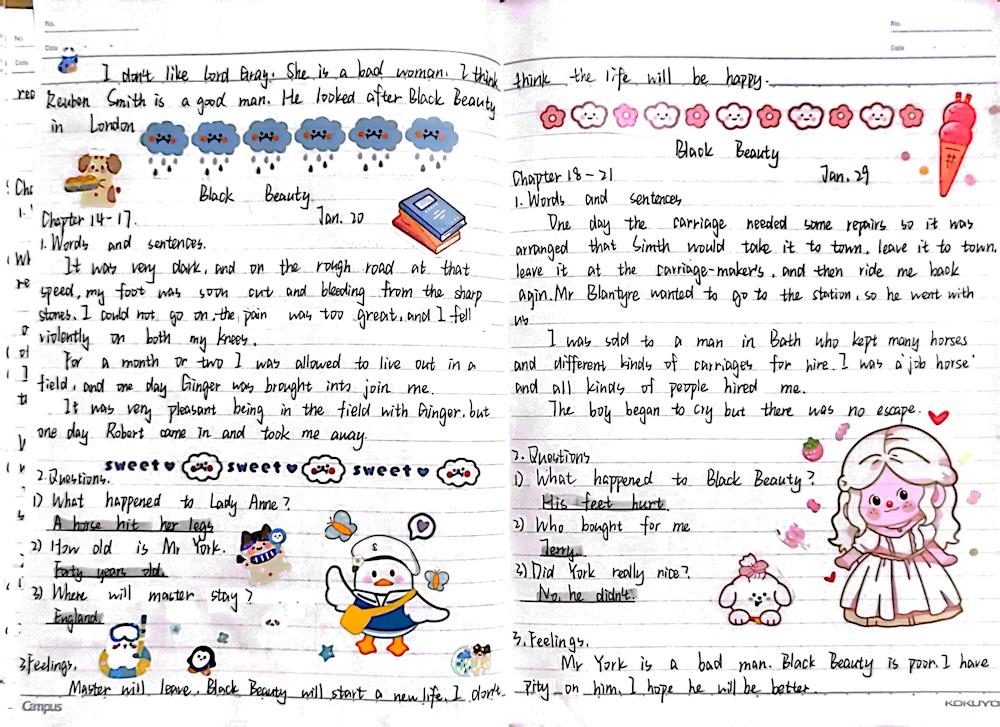 No.
Date
I don't like Lord Gray. She is a bad woman. I think
Reuben Smith is a good man. He looked after Black Beauty
in London
Black Beauty
Chapter 14-17. Jan. 20
1. Words and sentences.
It was very dark, and on the rough road at that
speed, my foot was soon cut and bleeding from the sharp
stones. I could not go on, the pain was too great, and I fell
violently on both my knees.
For a month or two I was allowed to live out in a
field, and one day Ginger was brought into join me.
It was very pleasant being in the field with Ginger, but
one day Robert came in and took me away.
sweet sweet sweet
2. Questions.
1) What happened to Lady Anne?
A horse hit her legs
2) How old is Mr York.
Forty years old.
3) Where will master stay?
England.
3. Feelings.
Master will leave. Black Beauty will start a new life. I don't
Campus
No.
Date
think the life will be happy.
Black Beauty
Chapter 18-21 Jan. 29
1. Words and sentences
One day the carriage needed some repairs so it was
arranged that Simth would take it to town, leave it to town.
leave it at the carriage-maker's, and then ride me back
agin. Mr Blantyre wanted to go to the station, so he went with
us
I was sold to a man in Bath who kept many horses
and different kinds of carriages for hire. I was a 'job horse'
and all kinds of people hired me.
The boy began to cry but there was no escape.
2. Questions
1) What happened to Black Beauty?
His feet hurt.
2) Who bought for me
Jerry.
3) Did York really nice?
No, he didn't.
3. Feelings.
Mr York is a bad man. Black Beauty is poor. I have
pity on him. I hope he will be better.
KOKUYO